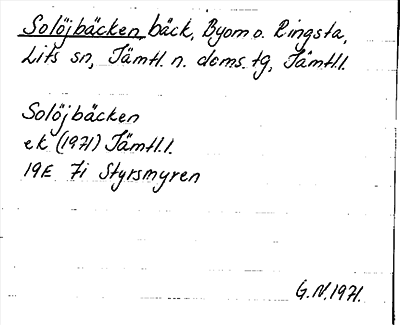 Solöjbäcken, bäck, Byom o. Ringsta,
Lits sn, Jämtl. n. doms. tg, Jämtl.l.
Solöjbäcken
ek (1971) Jämtl.l.
19E 7i Styrsmyren
G.N. 1971.